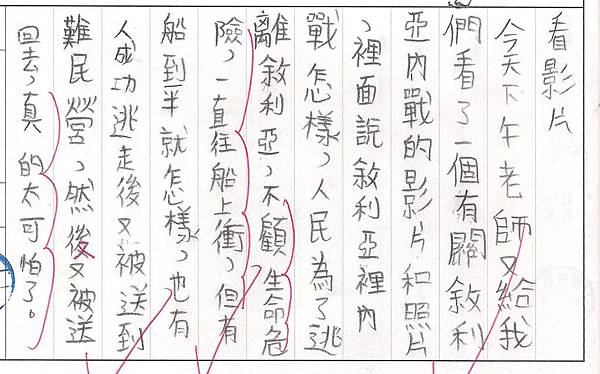 看影片
今天下午老師又給我
們看了一個有關敘利
亞內戰的影片和照片
，裡面說敘利亞裡內
戰怎樣，人民為了逃
離敘利亞，不顧生命危
險，一直往船上衝，但有
船到半就怎樣，也有
人成功逃走後又被送到
難民營，然後又被送
回去，真的太可怕了。